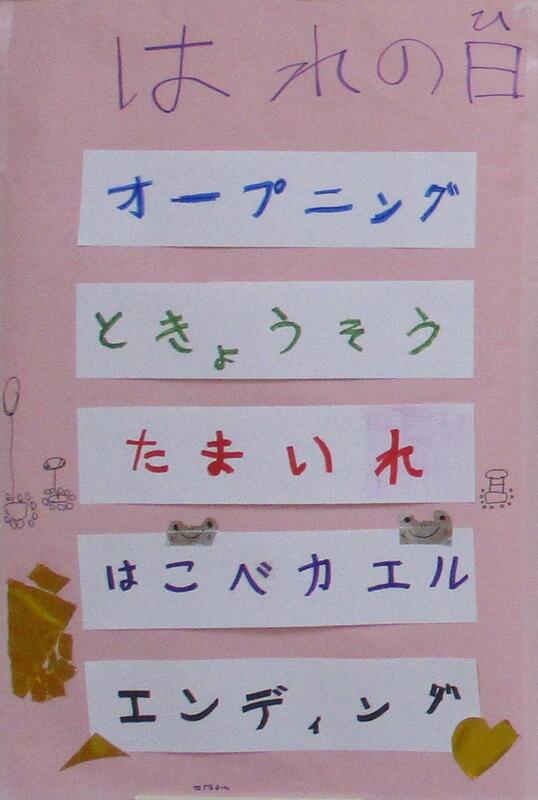 はれの日
ひ
オープニング
ときょうそう
たまいれ
はこべカエル
エンディング